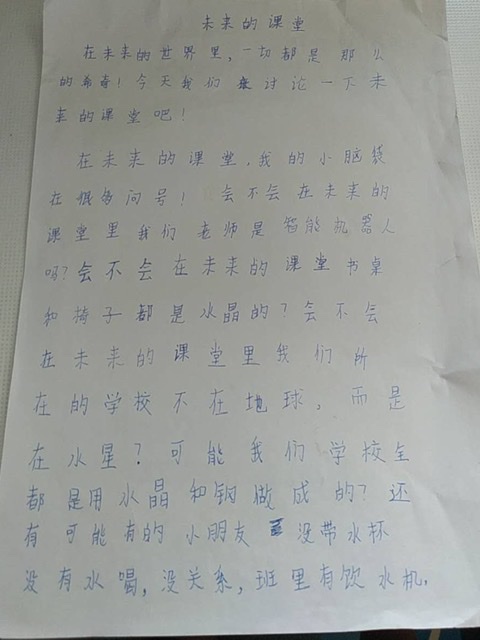 未来的课堂
在未来的世界里,一切都是那么
的希奇!今天我们来讨论一下未
来的课堂吧!
在未来的课堂,我的小脑袋
在很多问号!会不会在未来的
课堂里我们老师是智能机器人
吗?会不会在未来的课堂书桌
和椅子都是水晶的?会不会
在未来的课堂里我们所
在的学校不在地球,而是
在水星?可能我们学校全
都是用水晶和钢做成的?还
有可能有的小朋友没带水杯
没有水喝,没关系,班里有饮水机。